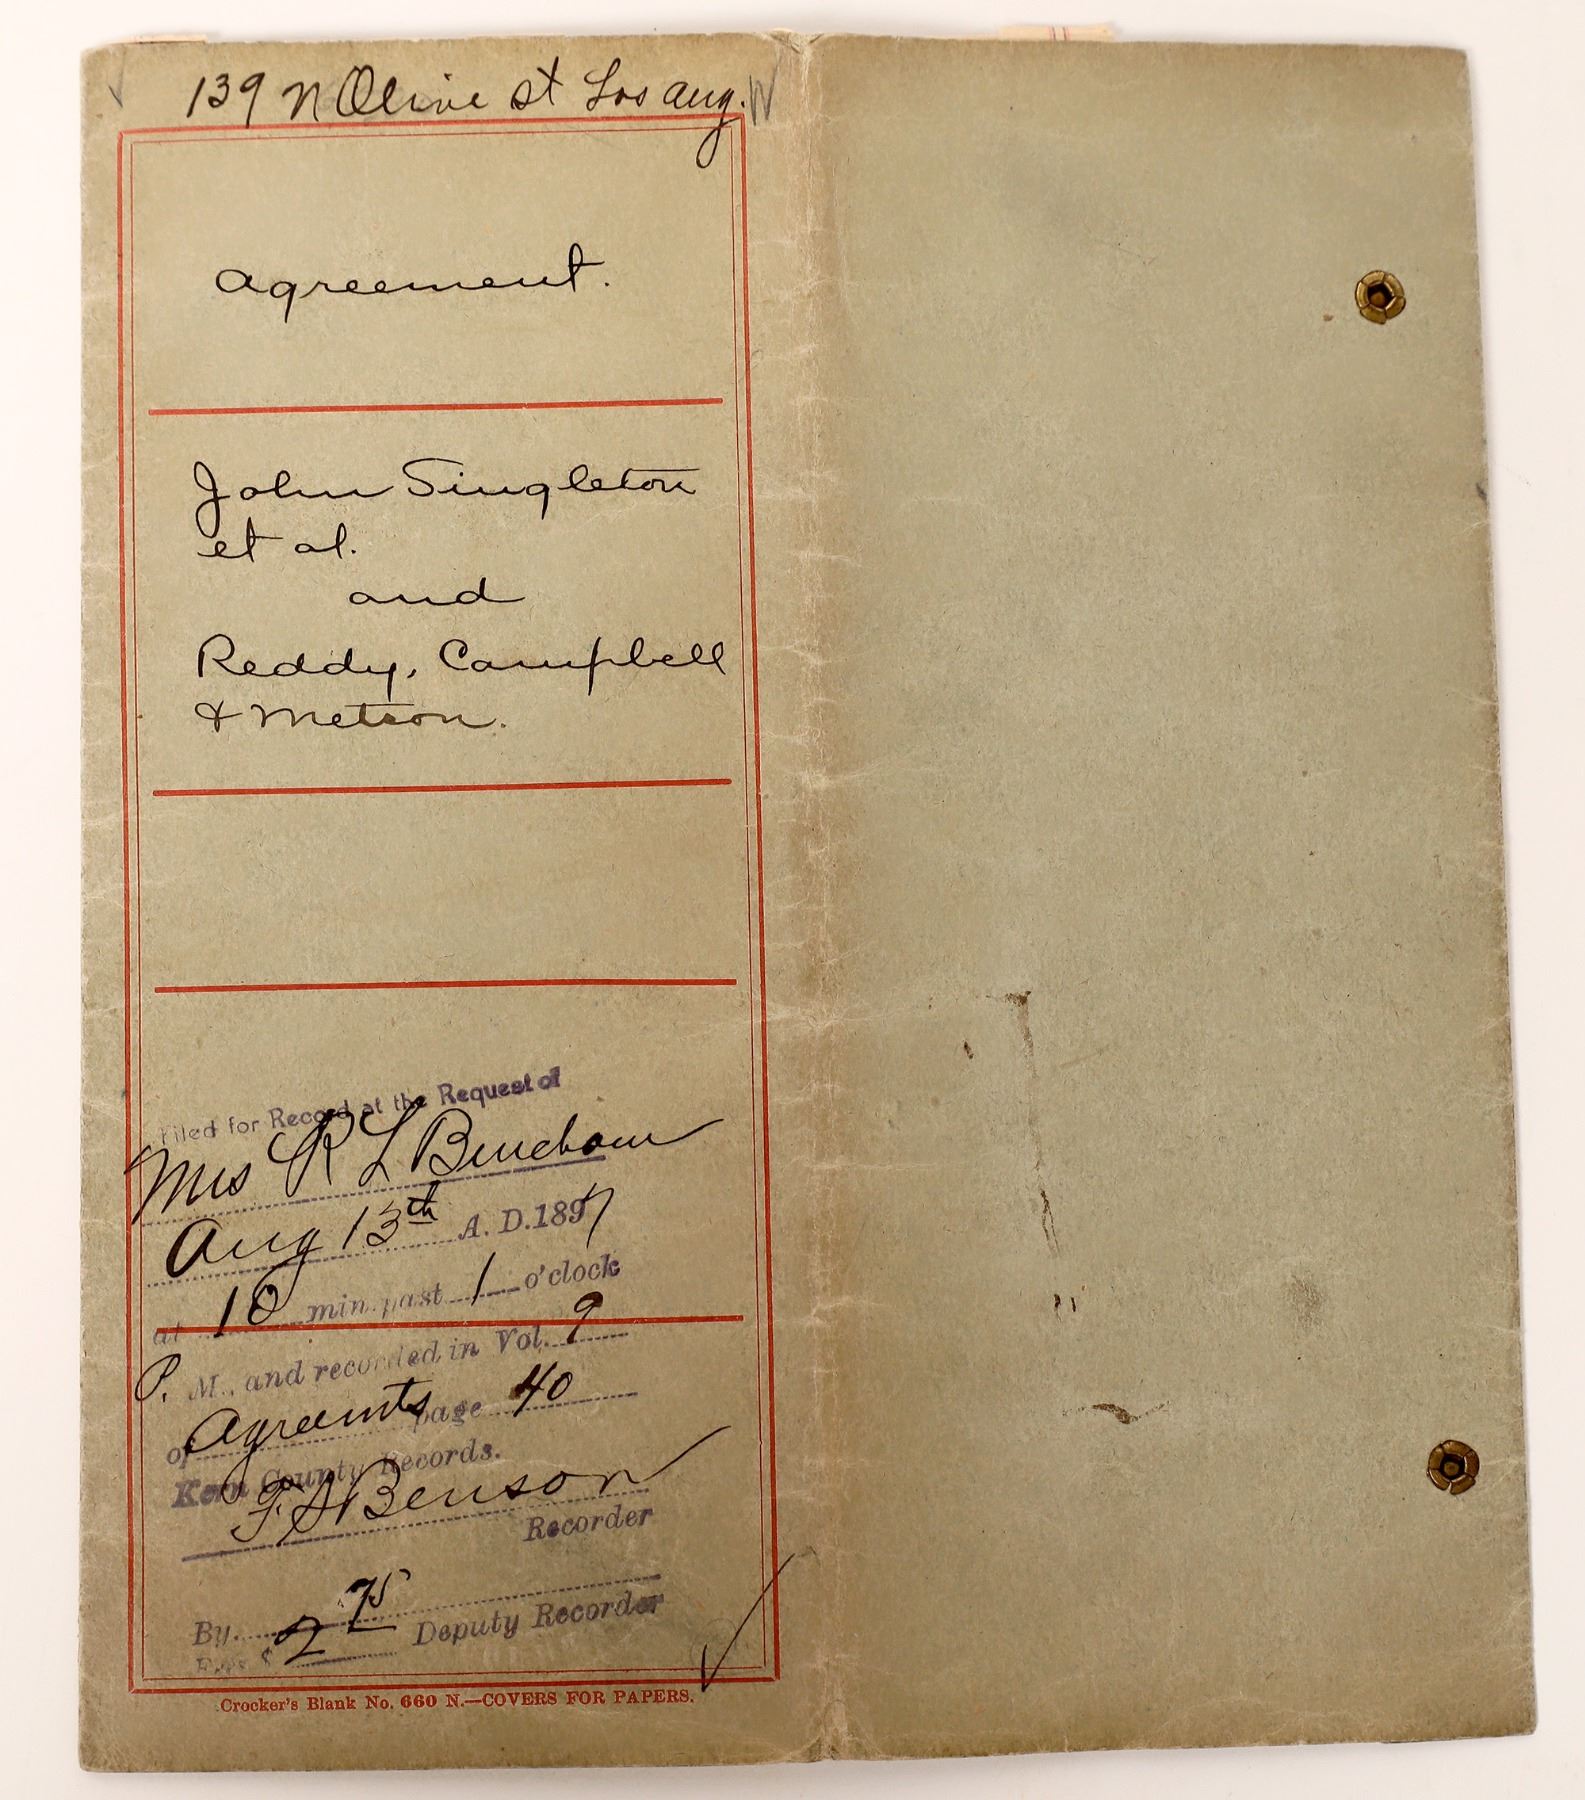 139 N Olive st Los Ang.
Agreement.
John Singleton
et al.
and
Reddy, Campbell
& Metson.
Filed for Record at the Request of
Mrs R L Burcham
Aug 13th A. D. 1897
at 10 min. past 1 o'clock
P. M., and recorded in Vol. 9
of Agreemts page 40
Kern County Records.
F. S. Benson
Recorder
By
2 75 Deputy Recorder
Fees $
Crocker's Blank No. 660 N.—COVERS FOR PAPERS.